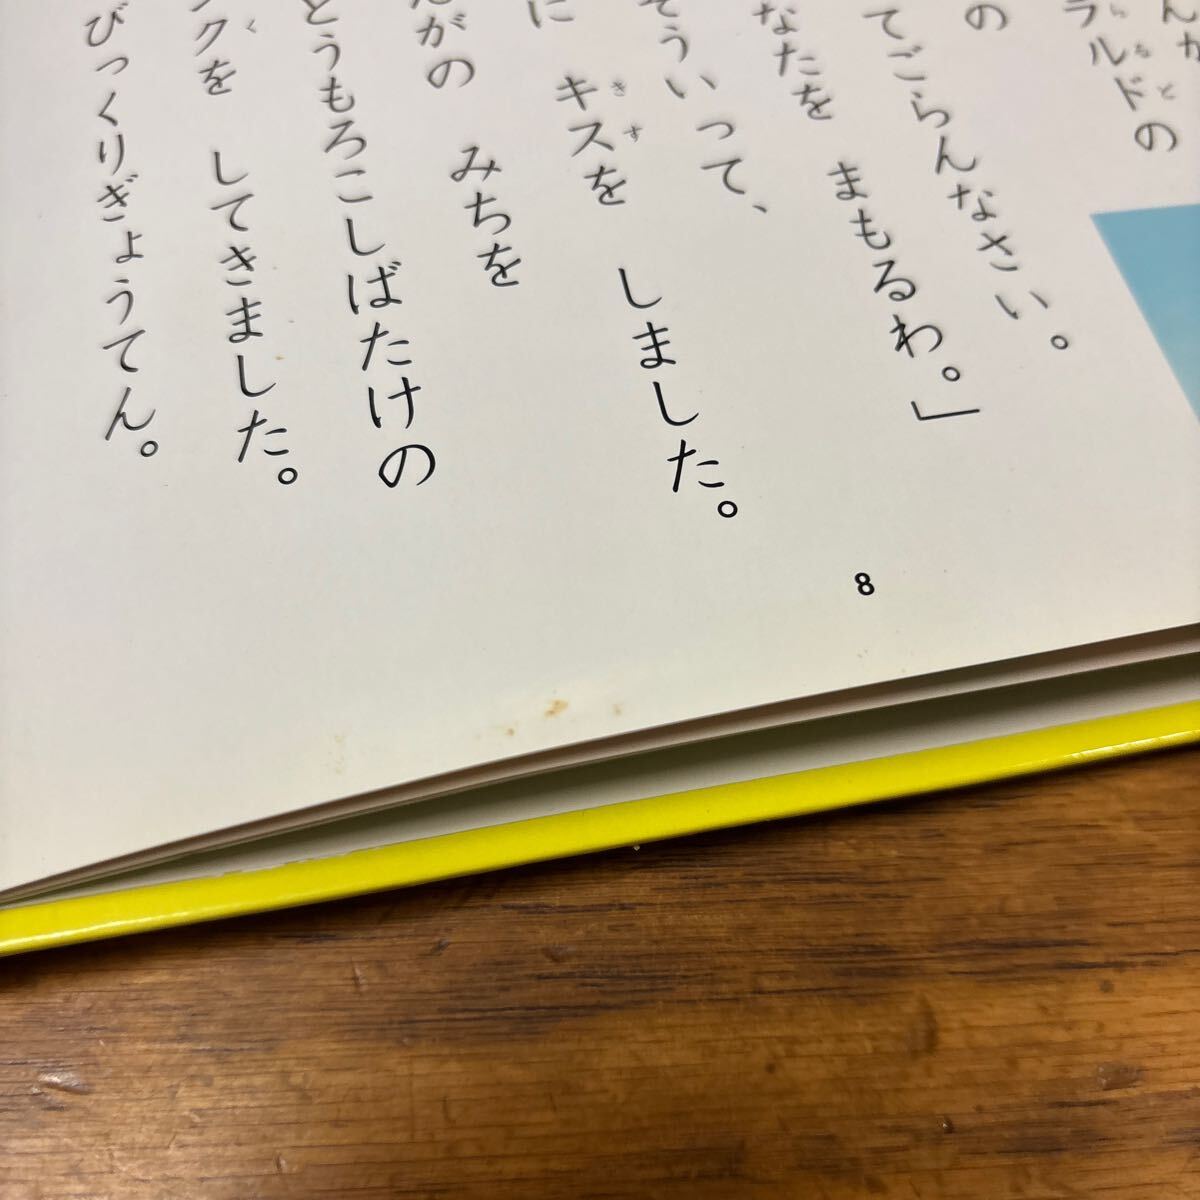 ラルドの
の
てごらんなさい。
なたを　まもるわ。」
そういって、
に　キスを　しました。
がの　みちを
とうもろこしばたけの
クを　してきました。
びっくりぎょうてん。
8